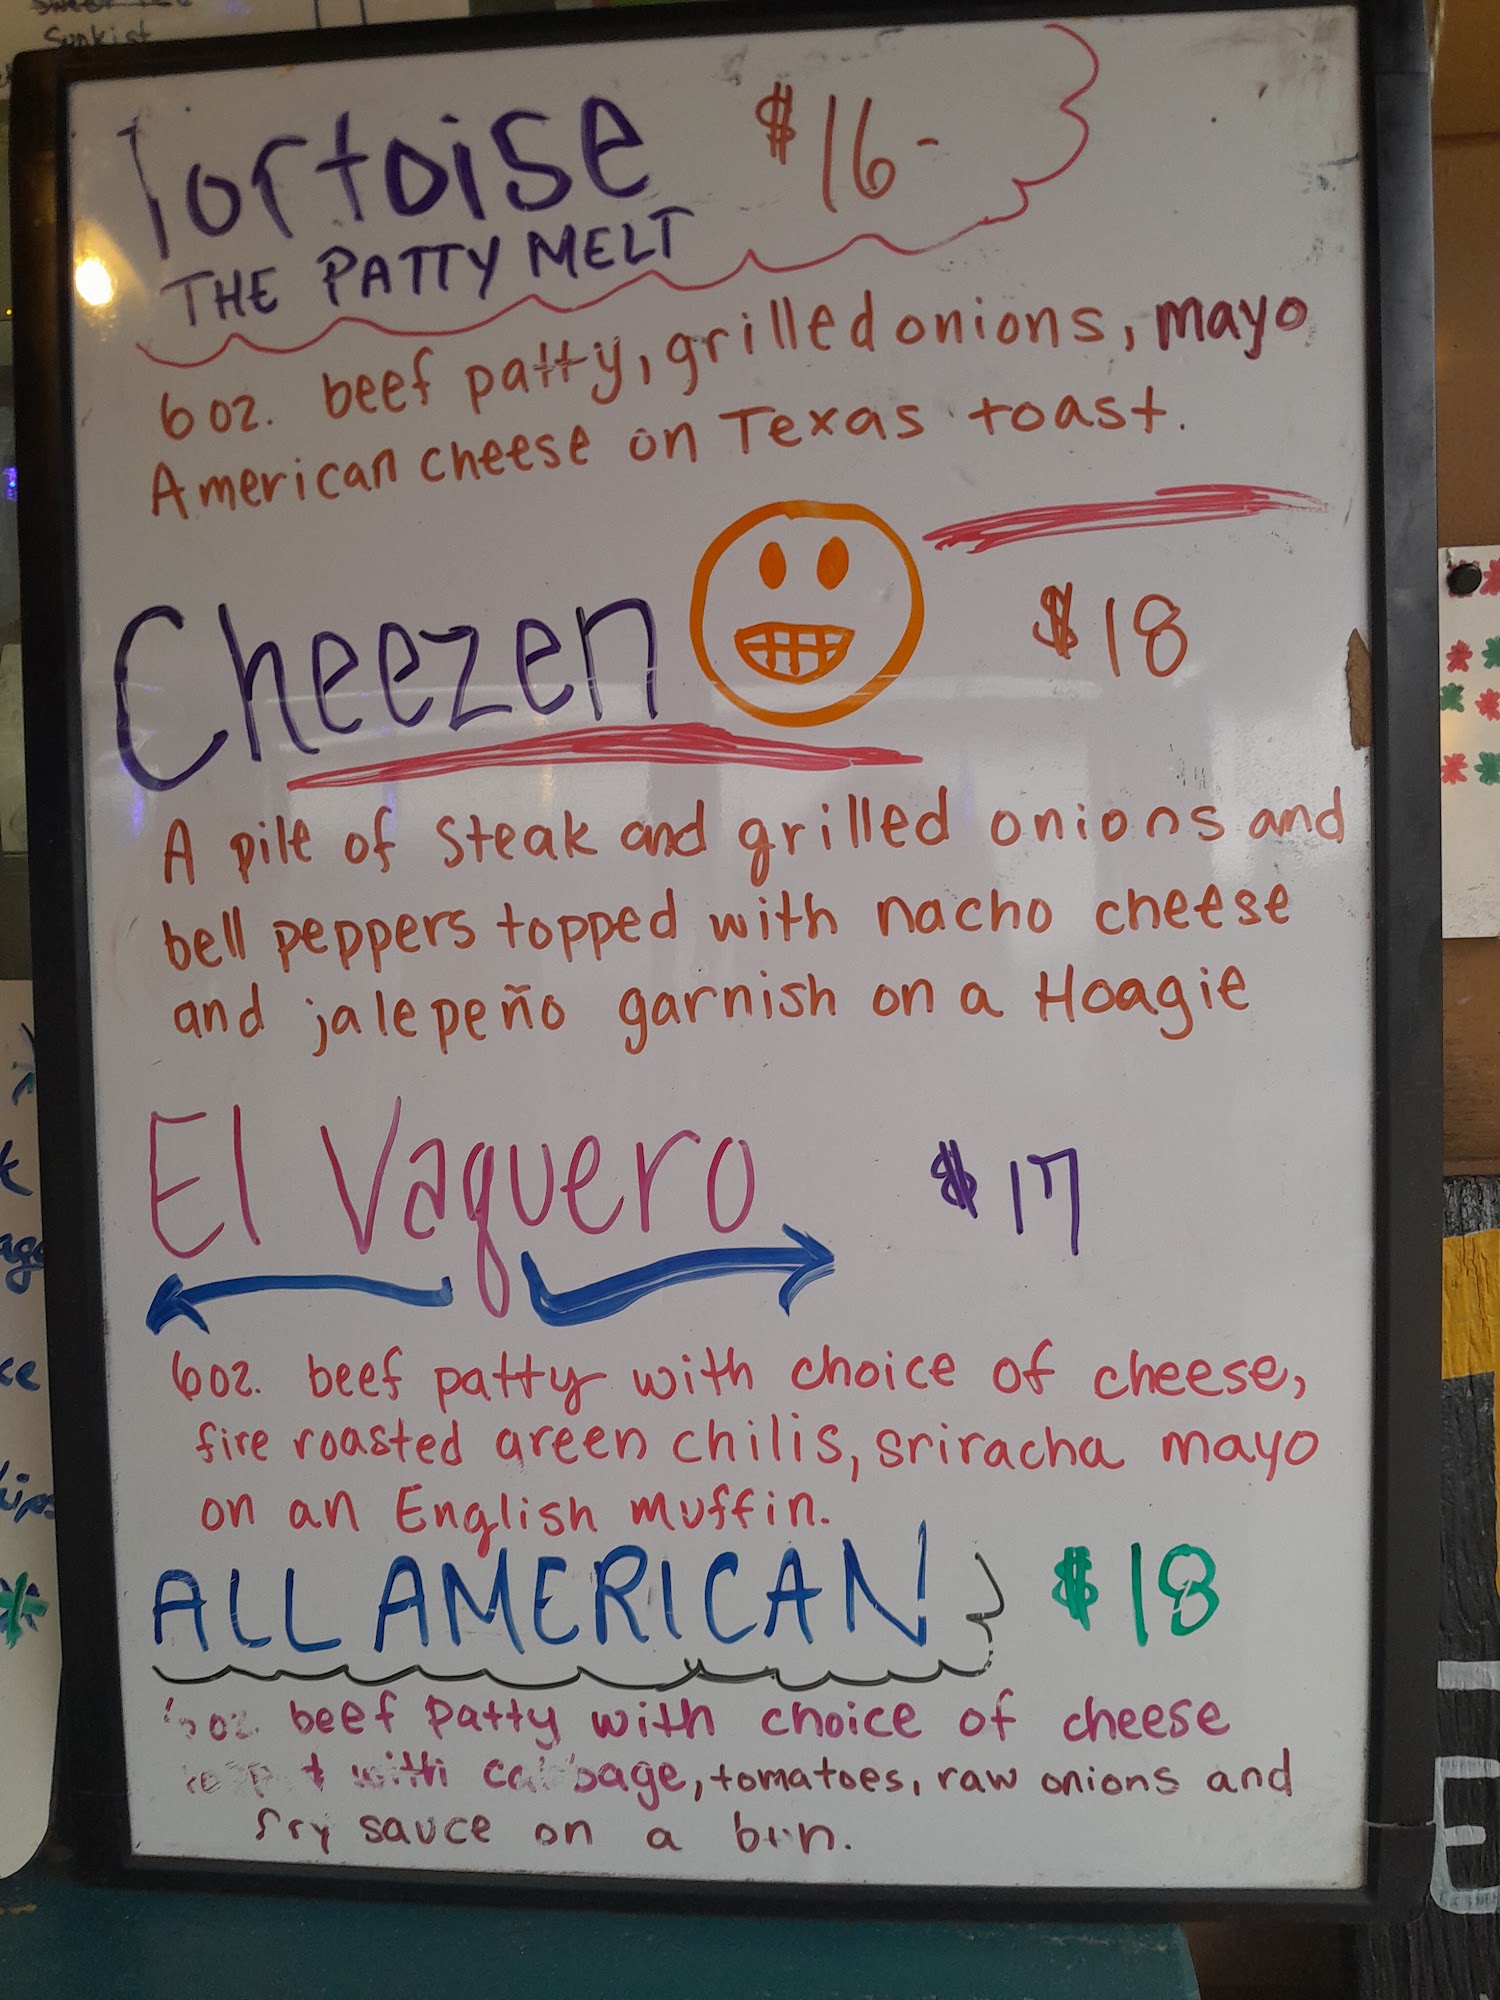 Sunkist
Tortoise $16-
THE PATTY MELT
6 oz. beef patty, grilled onions, mayo
American cheese on Texas toast.
Cheezen $18
A pile of steak and grilled onions and
bell peppers topped with nacho cheese
and jalepeño garnish on a Hoagie
El Vaquero $17
6oz. beef patty with choice of cheese,
fire roasted green chilis, sriracha mayo
on an English muffin.
ALL AMERICAN $18
oz. beef patty with choice of cheese
with cabbage, tomatoes, raw onions and
fry sauce on a bun.